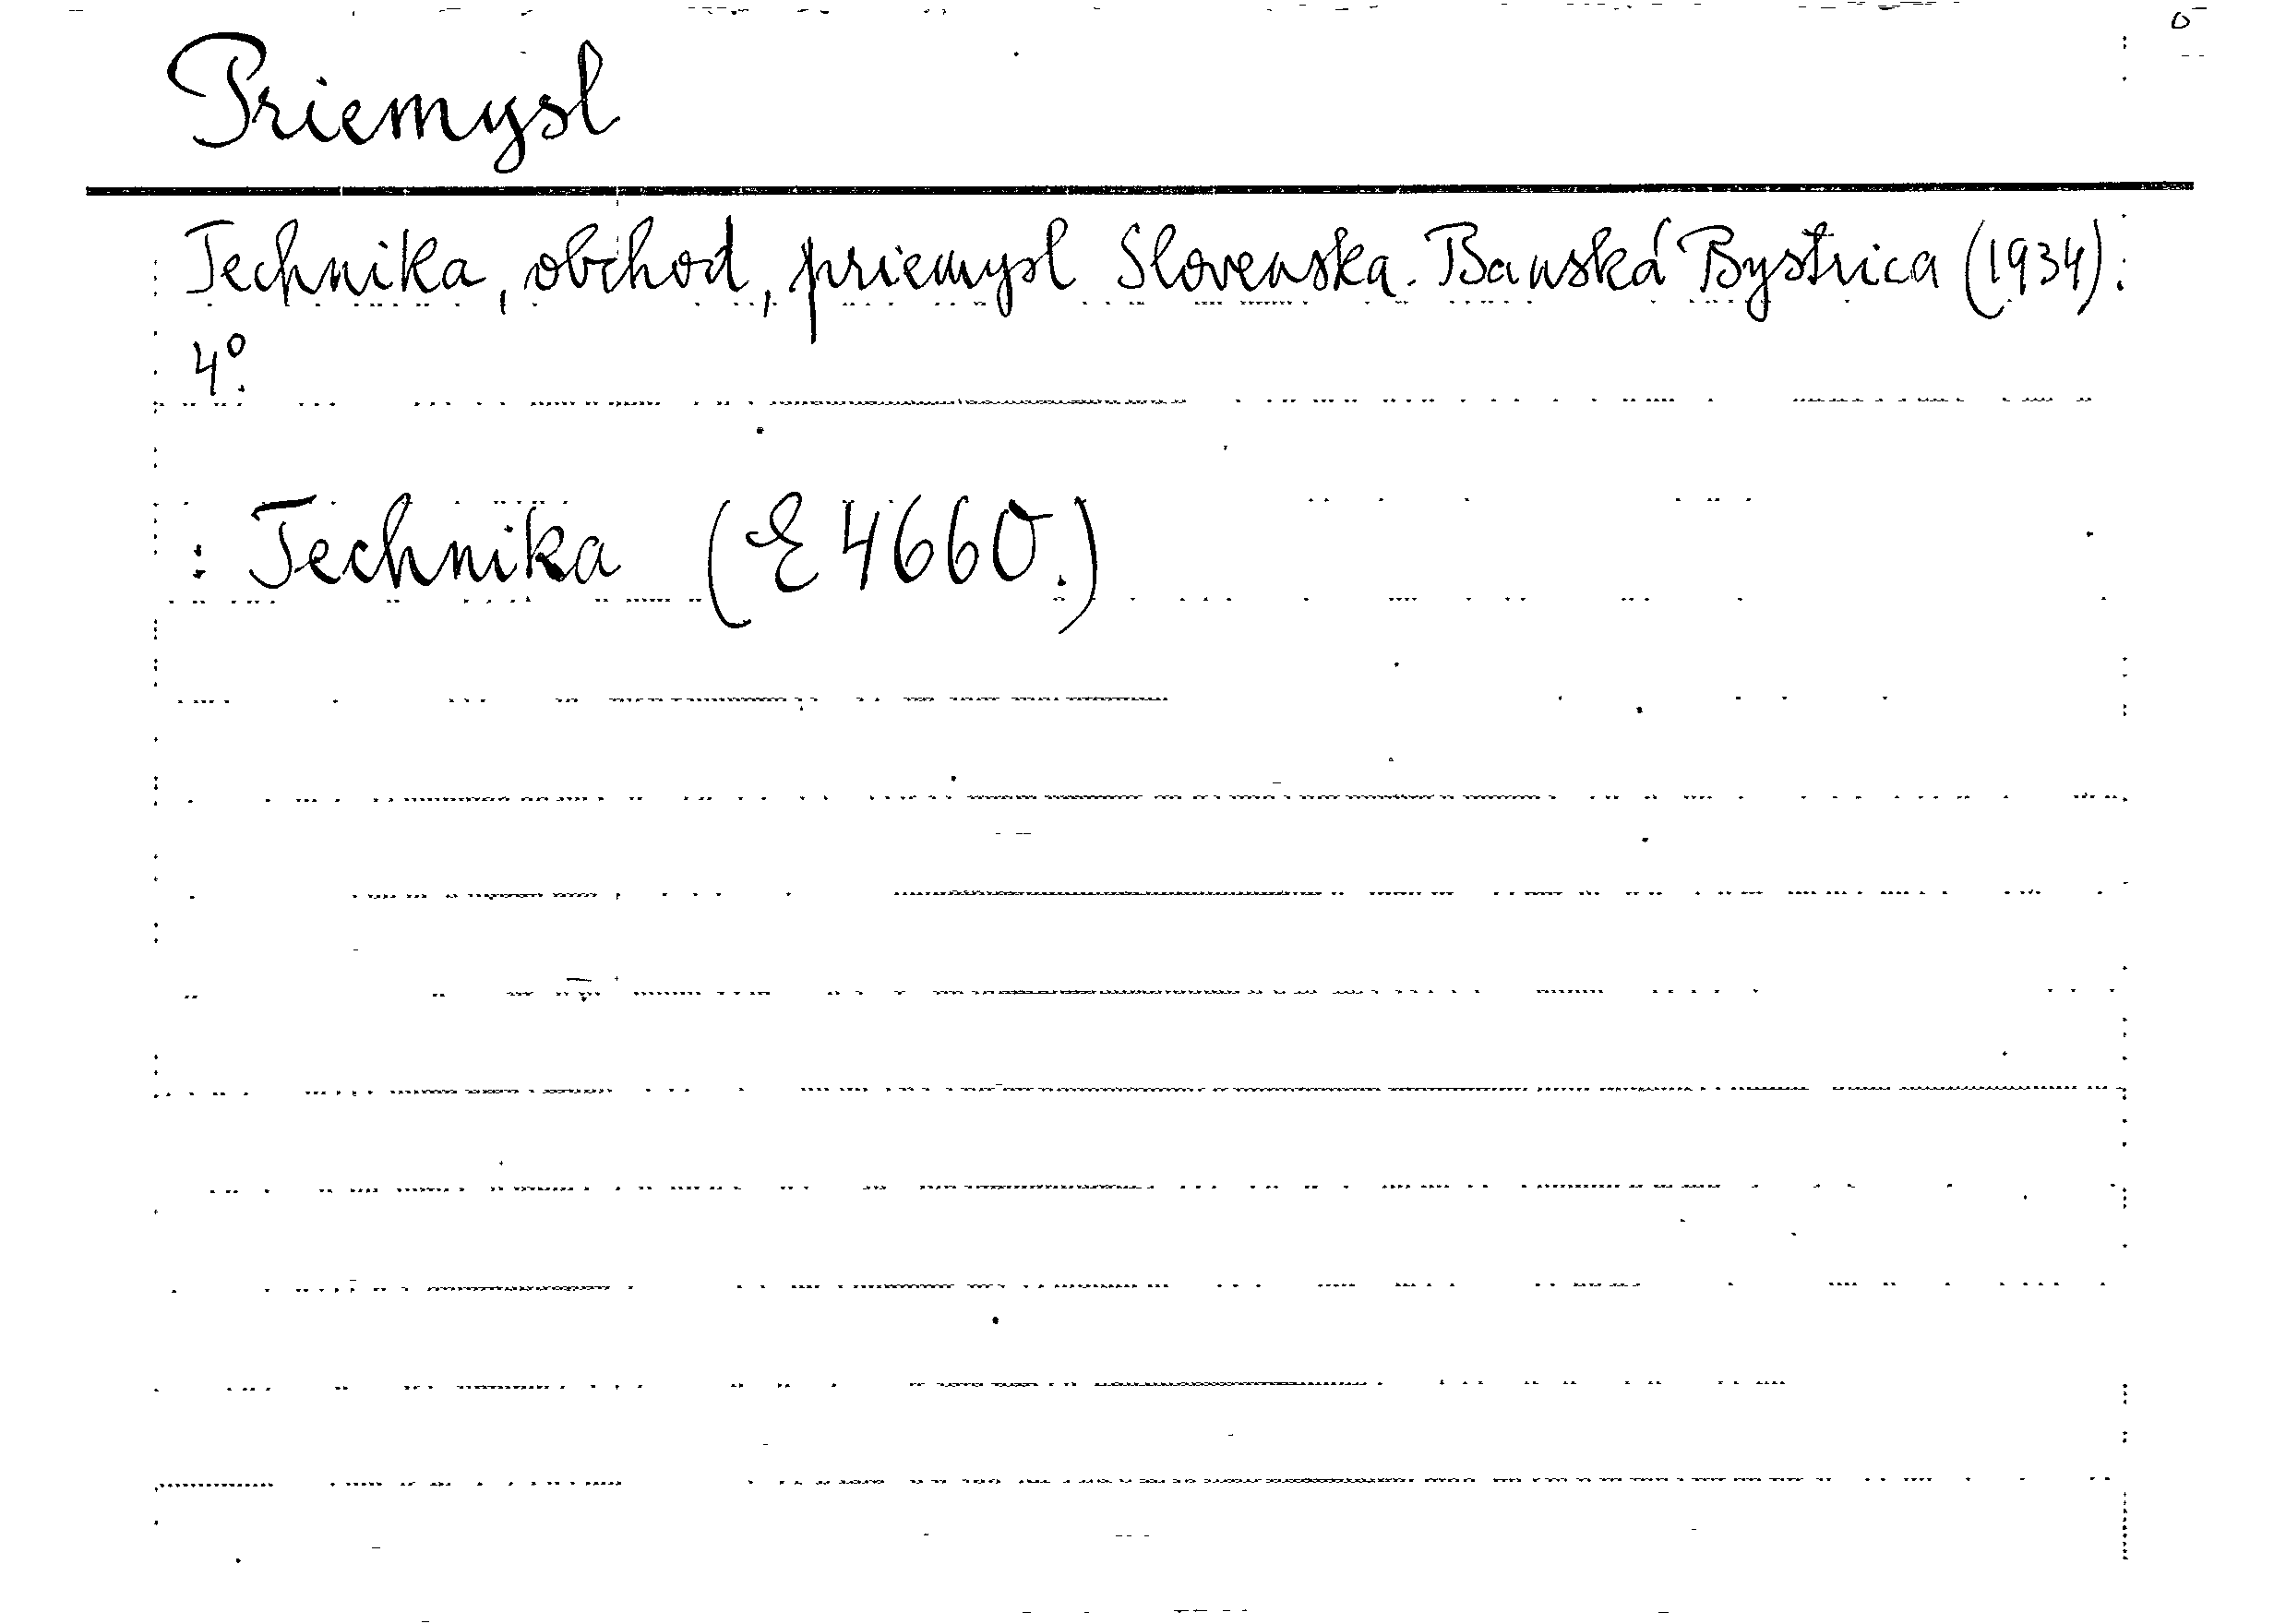 Priemysl
Technika, obchod, priemysl Slovenska. Banská Bystrica (1934).
4º.
: Technika (E 4660.)